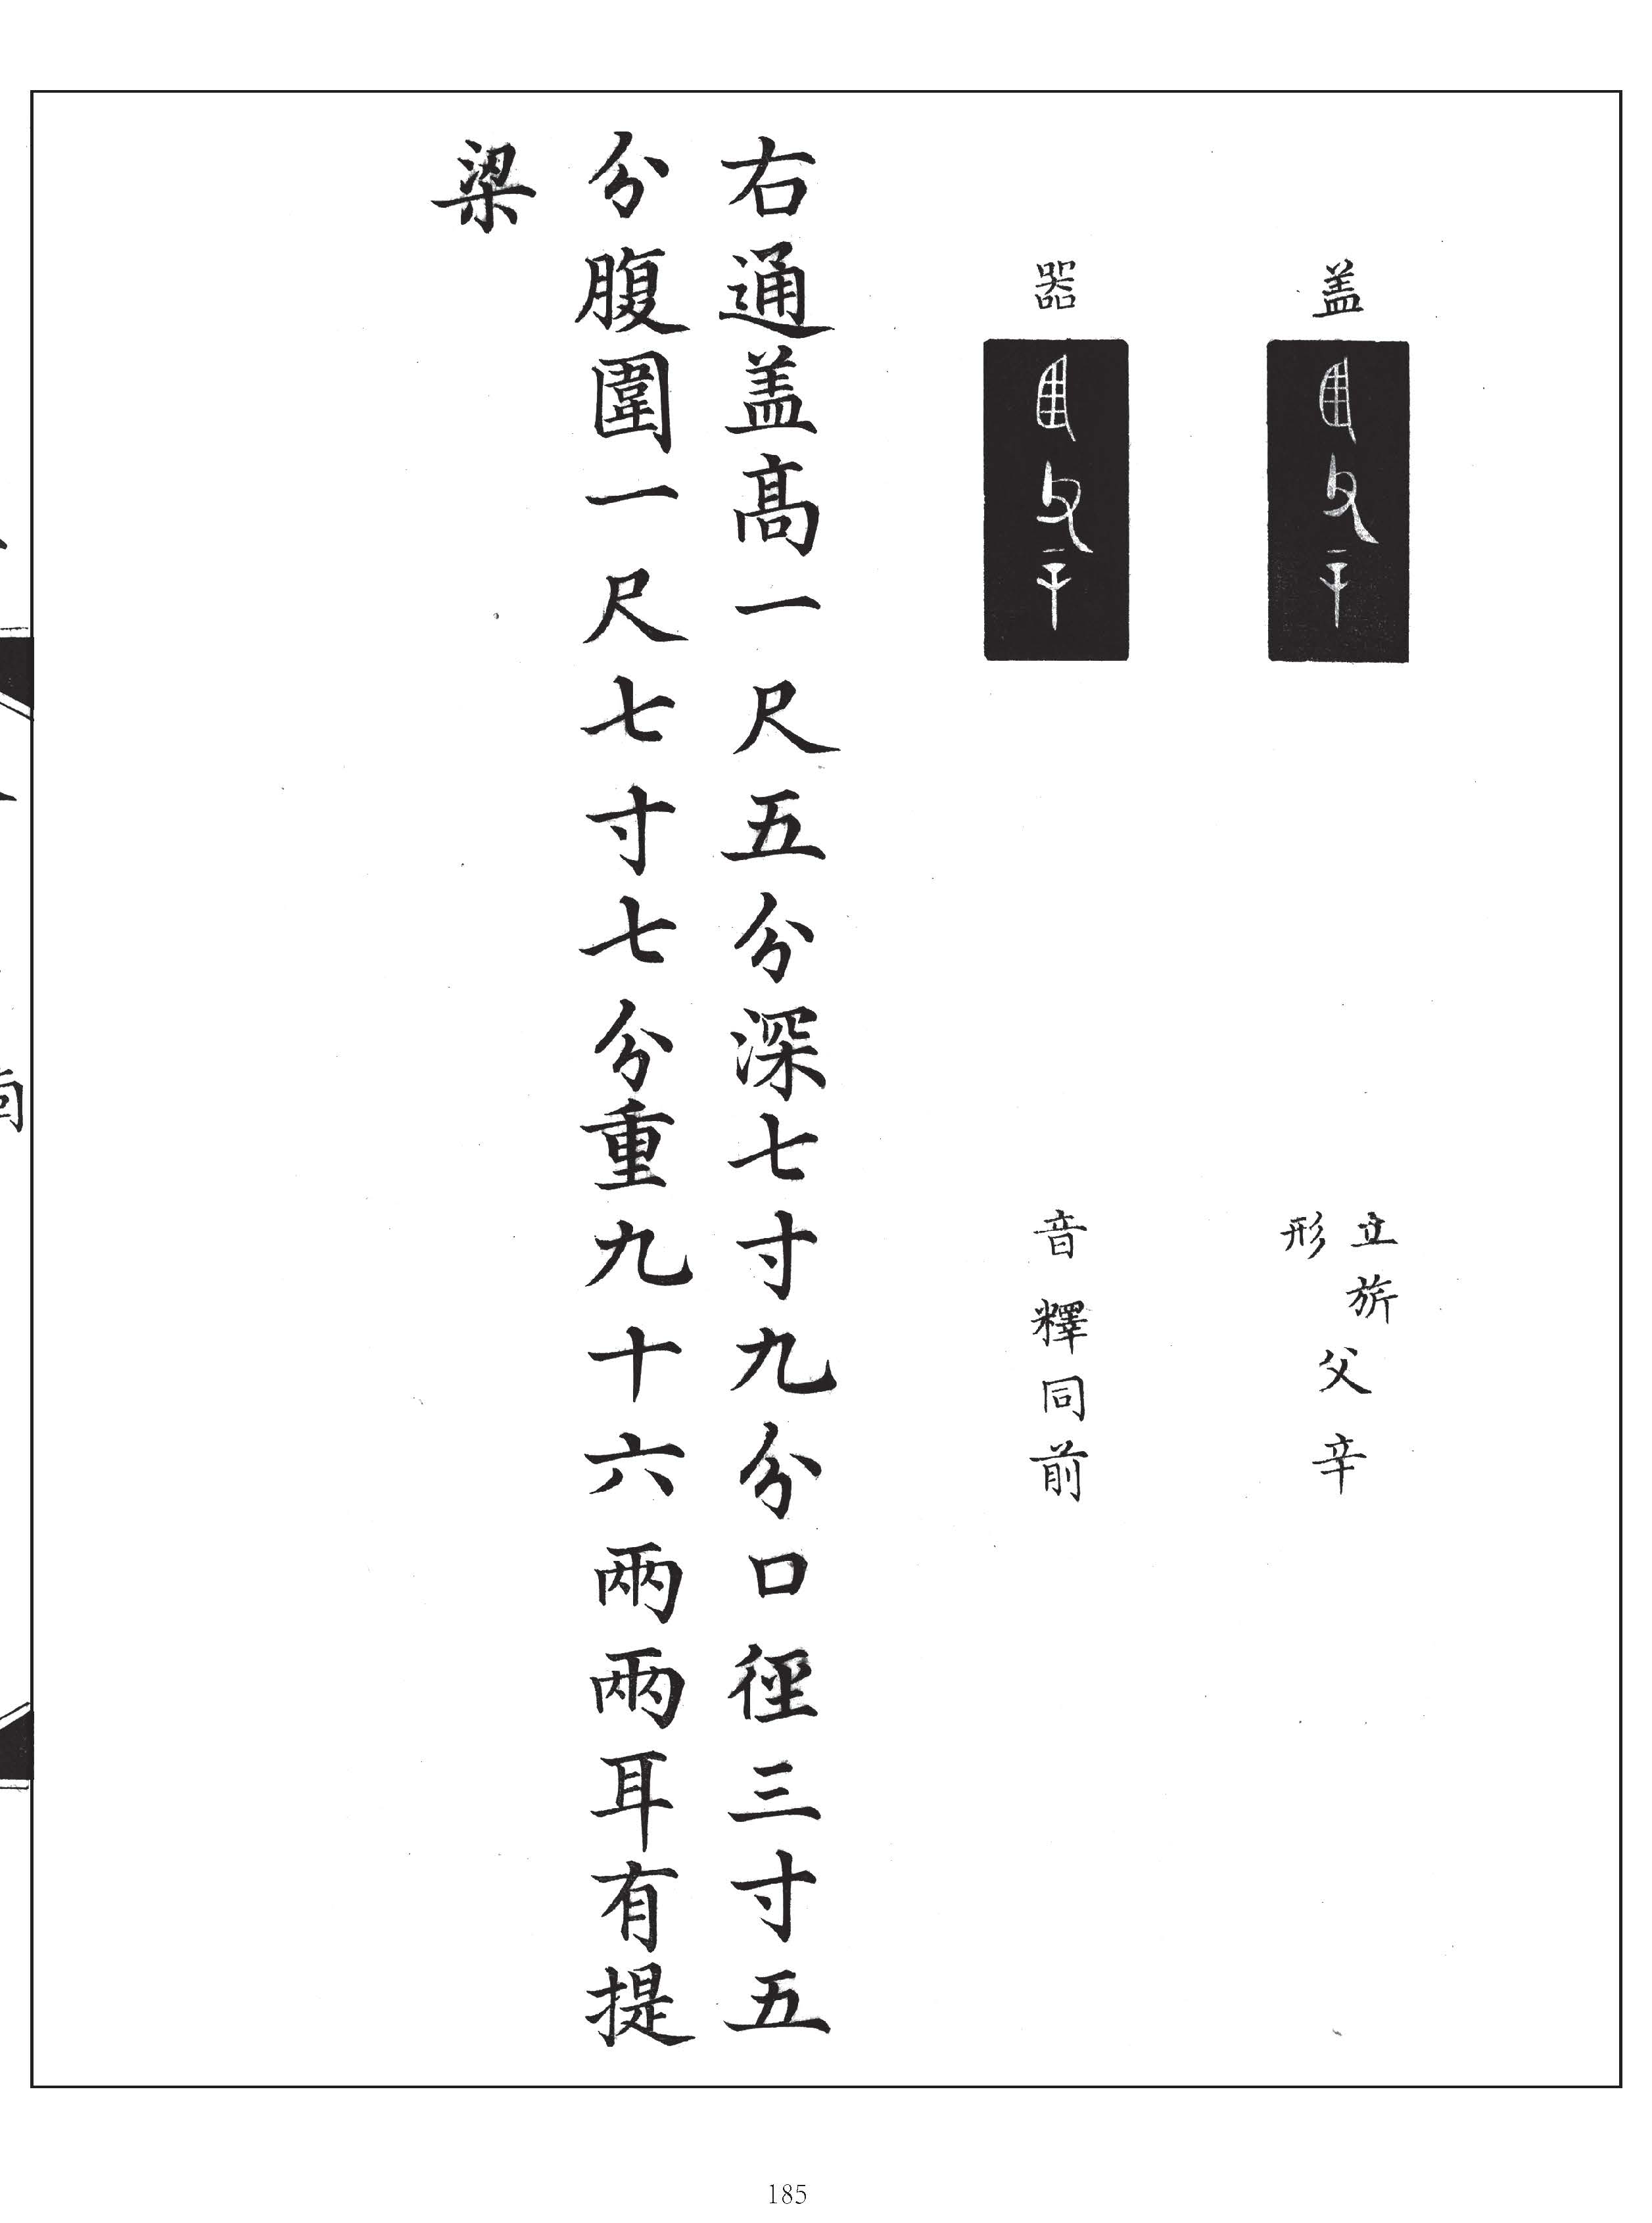 盖
立旂
形
父辛
器
音釋同前
右通盖髙一尺五分深七寸九分口徑三寸五
分腹圍一尺七寸七分重九十六兩兩耳有提
梁
185